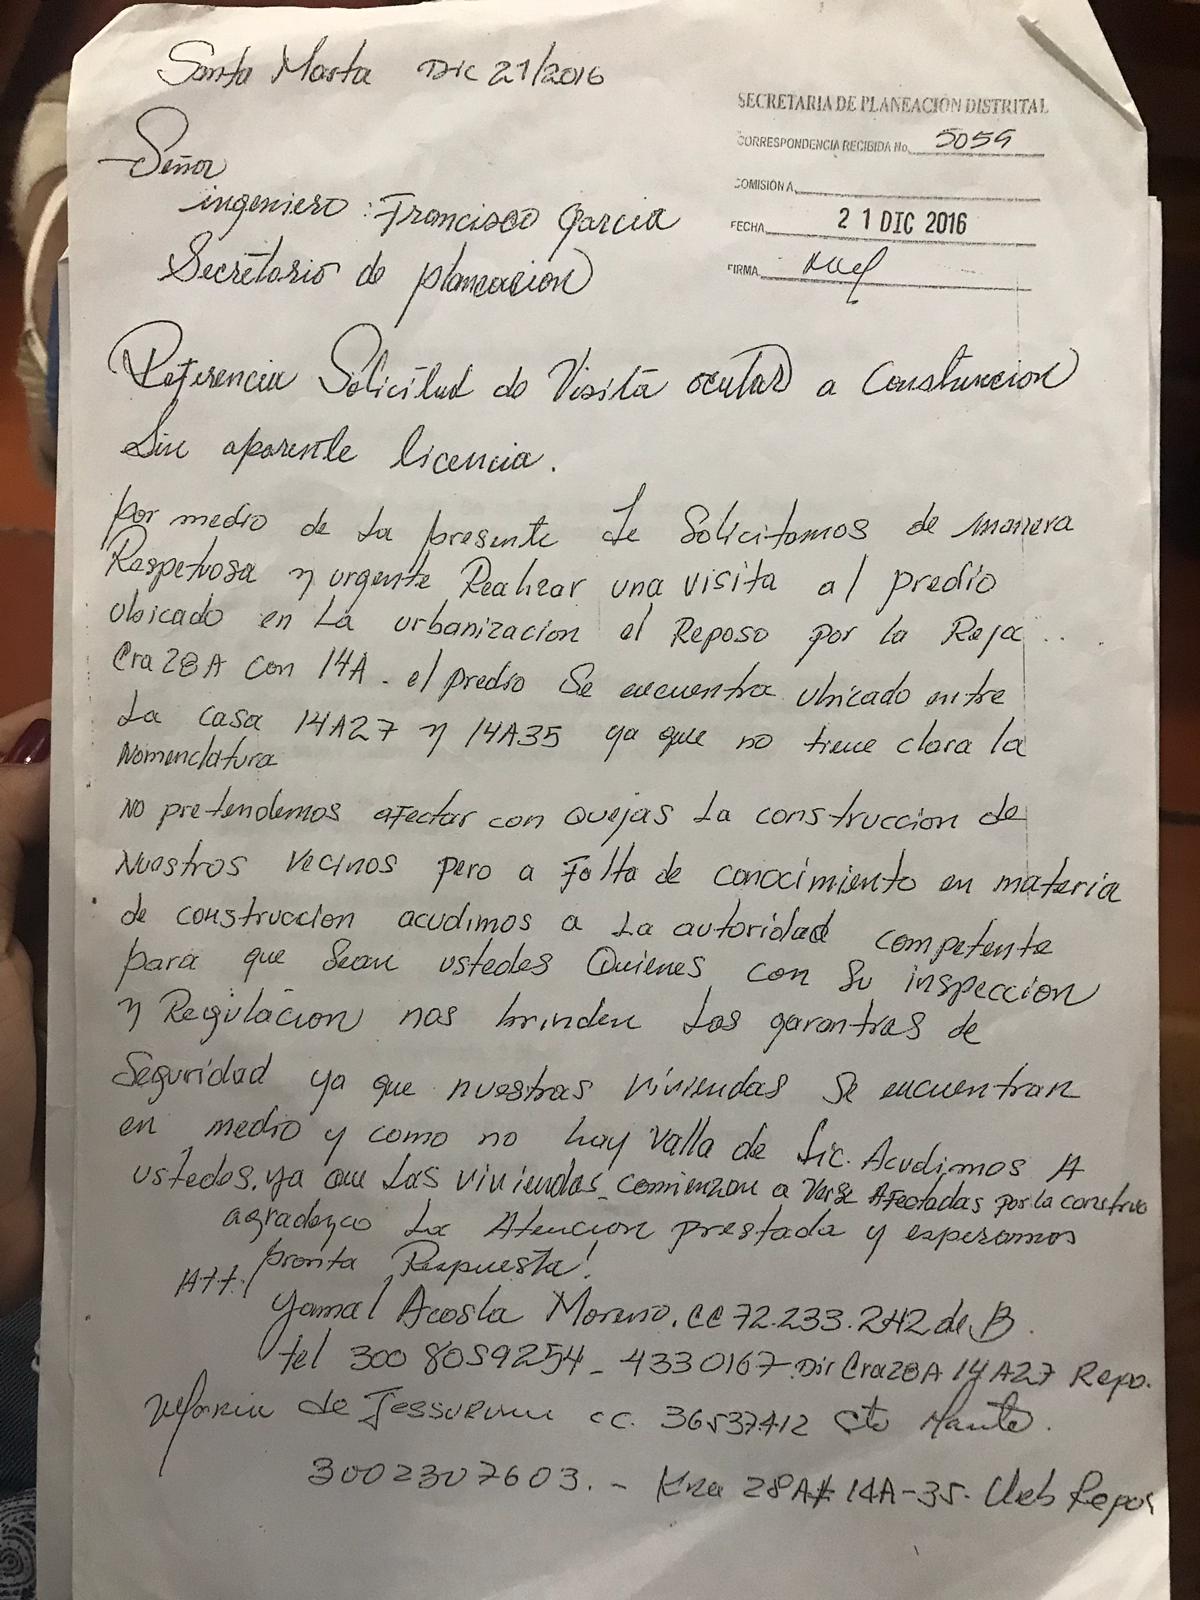 Santa Marta Dic 21/2016
SECRETARIA DE PLANEACIÓN DISTRITAL
CORRESPONDENCIA RECIBIDA No. 5059
COMISIÓN A
FECHA 21 DIC 2016
FIRMA
Señor
ingeniero: Francisco Garcia
Secretario de planeacion
Referencia Solicitud de Visita ocular a Construcion
Sin aparente licencia.
por medio de La presente Le Solicitamos de manera
Respetuosa y urgente Realizar una visita al predio
ubicado en La urbanizacion el Reposo por la Reja ..
Cra 28A con 14A. el predio Se encuentra ubicado entre
La casa 14A27 y 14A35 ya que no tiene clara la
Nomenclatura
No pretendemos afectar con quejas La construccion de
Nuestros vecinos pero a Falta de conocimiento en materia
de construccion acudimos a La autoridad competente
para que Sean ustedes Quienes con Su inspeccion
y Regulacion nos brinden Las garantias de
Seguridad ya que nuestras viviendas Se encuentran
en medio y como no hay valla de Lic. Acudimos A
ustedes. ya que Las viviendas comienzan a Verse Afectadas por la construc
agradezco La Atencion prestada y esperamos
pronta Respuesta!
Att./
Yamal Acosta Moreno. CC 72.233.242 de B.
tel 300 8059254 - 4330167 Dir Cra28A 14A27 Repo.
Maria de cc. 36537412 Sto Marta.
3002307603. - Kra 28A# 14A-35. Urb Repos